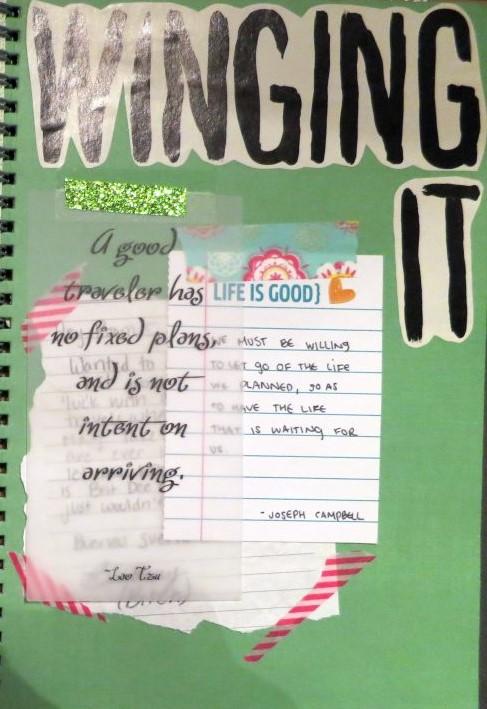 WINGING
IT
A good
traveler has
no fixed plans,
and is not
intent on
arriving.
-Lao Tzu
LIFE IS GOOD}
WE MUST BE WILLING
TO LET GO OF THE LIFE
WE PLANNED, SO AS
TO HAVE THE LIFE
THAT IS WAITING FOR
US.
-JOSEPH CAMPBELL
Wanted to
luck
are ever
is
just wouldn't
Buenos